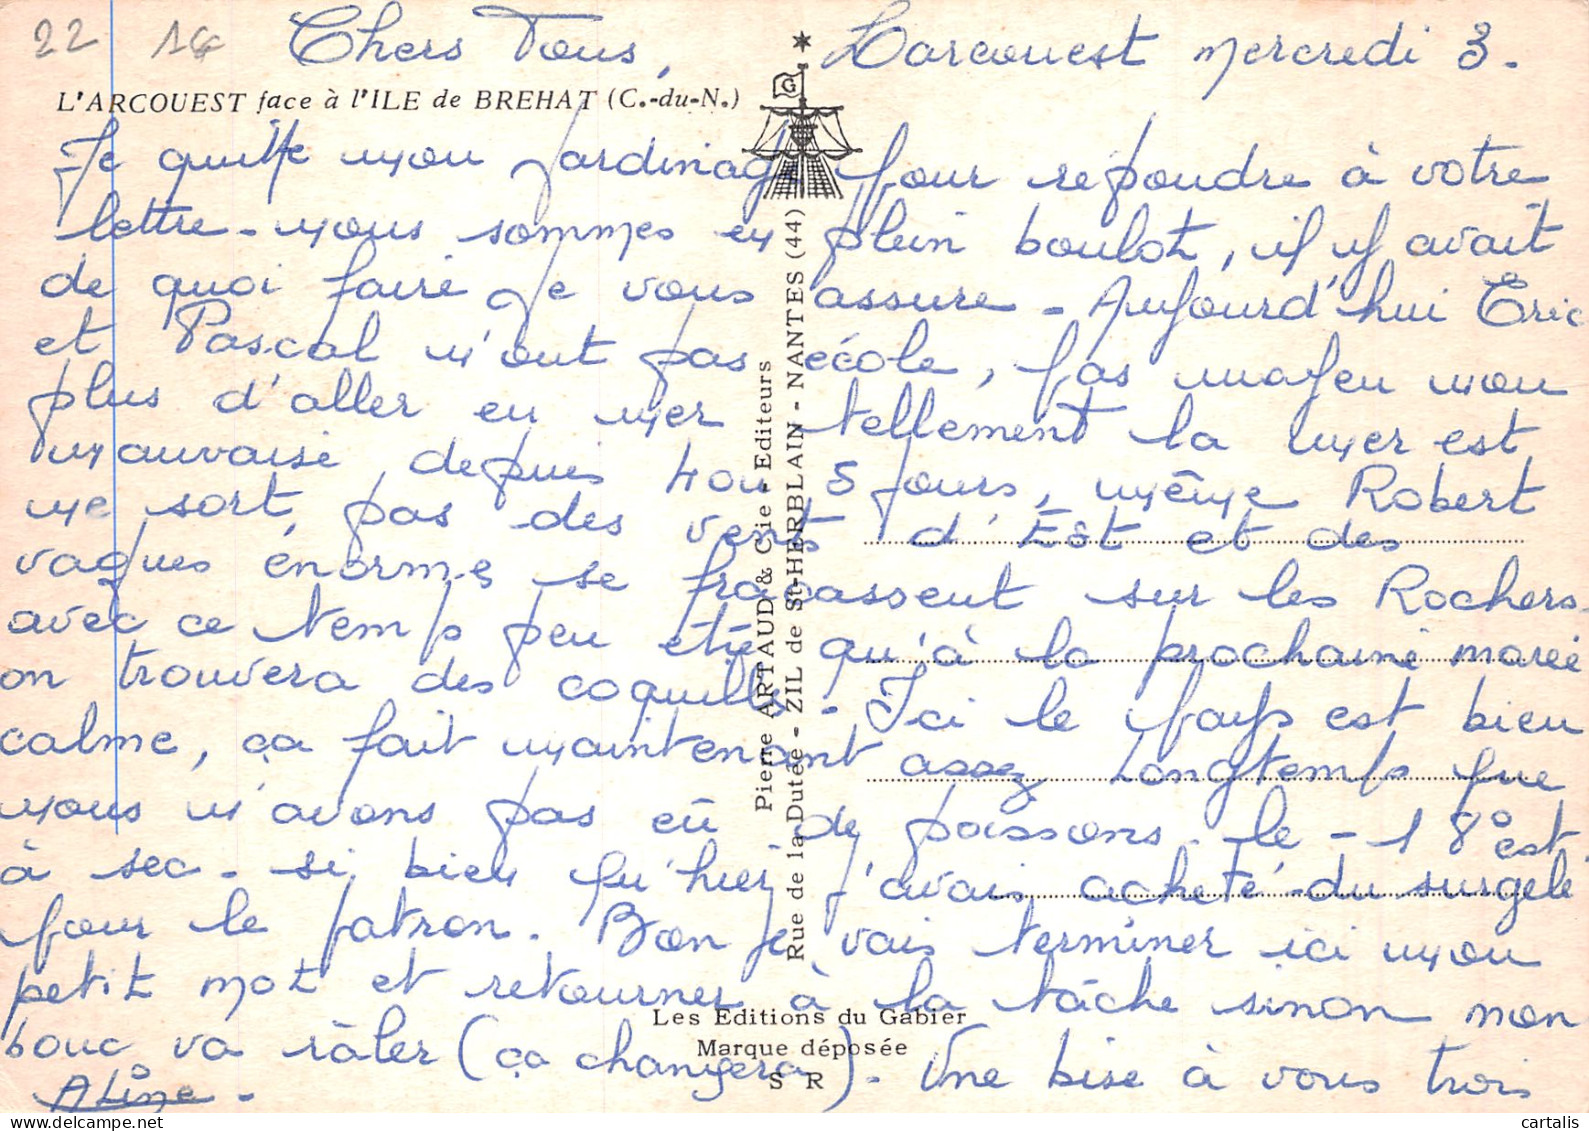 22 14 Chers Tous, Larcouest mercredi 3.
L'ARCOUEST face à l'ILE de BREHAT (C.-du-N.)
G
Je quitte mon jardinage pour repondre à votre
lettre - nous sommes en plein boulot, il y avait
de quoi faire je vous assure - Aujourd'hui Eric
et Pascal n'ont pas école, pas moyen non
plus d'aller en mer tellement la mer est
mauvaise, depuis 4 ou 5 jours, même Robert
ne sort pas des vents d'Est et des
vagues énormes se fracassent sur les Rochers.
avec ce temps peu être qu'à la prochaine marée
on trouvera des coquilles - Ici le pays est bien
calme, ça fait maintenant assez longtemps que
nous n'avons pas eû de poissons - le - 18° est
à sec - si bien qu'hier j'avais acheté du surgelé
pour le patron. Bon je vais terminer ici mon
petit mot et retourner à la tâche sinon mon
bouc va râler (ça changera) - Une bise à vous trois
Aline -
Pierre ARTAUD & Cie - Editeurs
Rue de la Dutée - ZIL de St-HERBLAIN - NANTES (44)
Les Editions du Gabier
Marque déposée
S R
cartalis